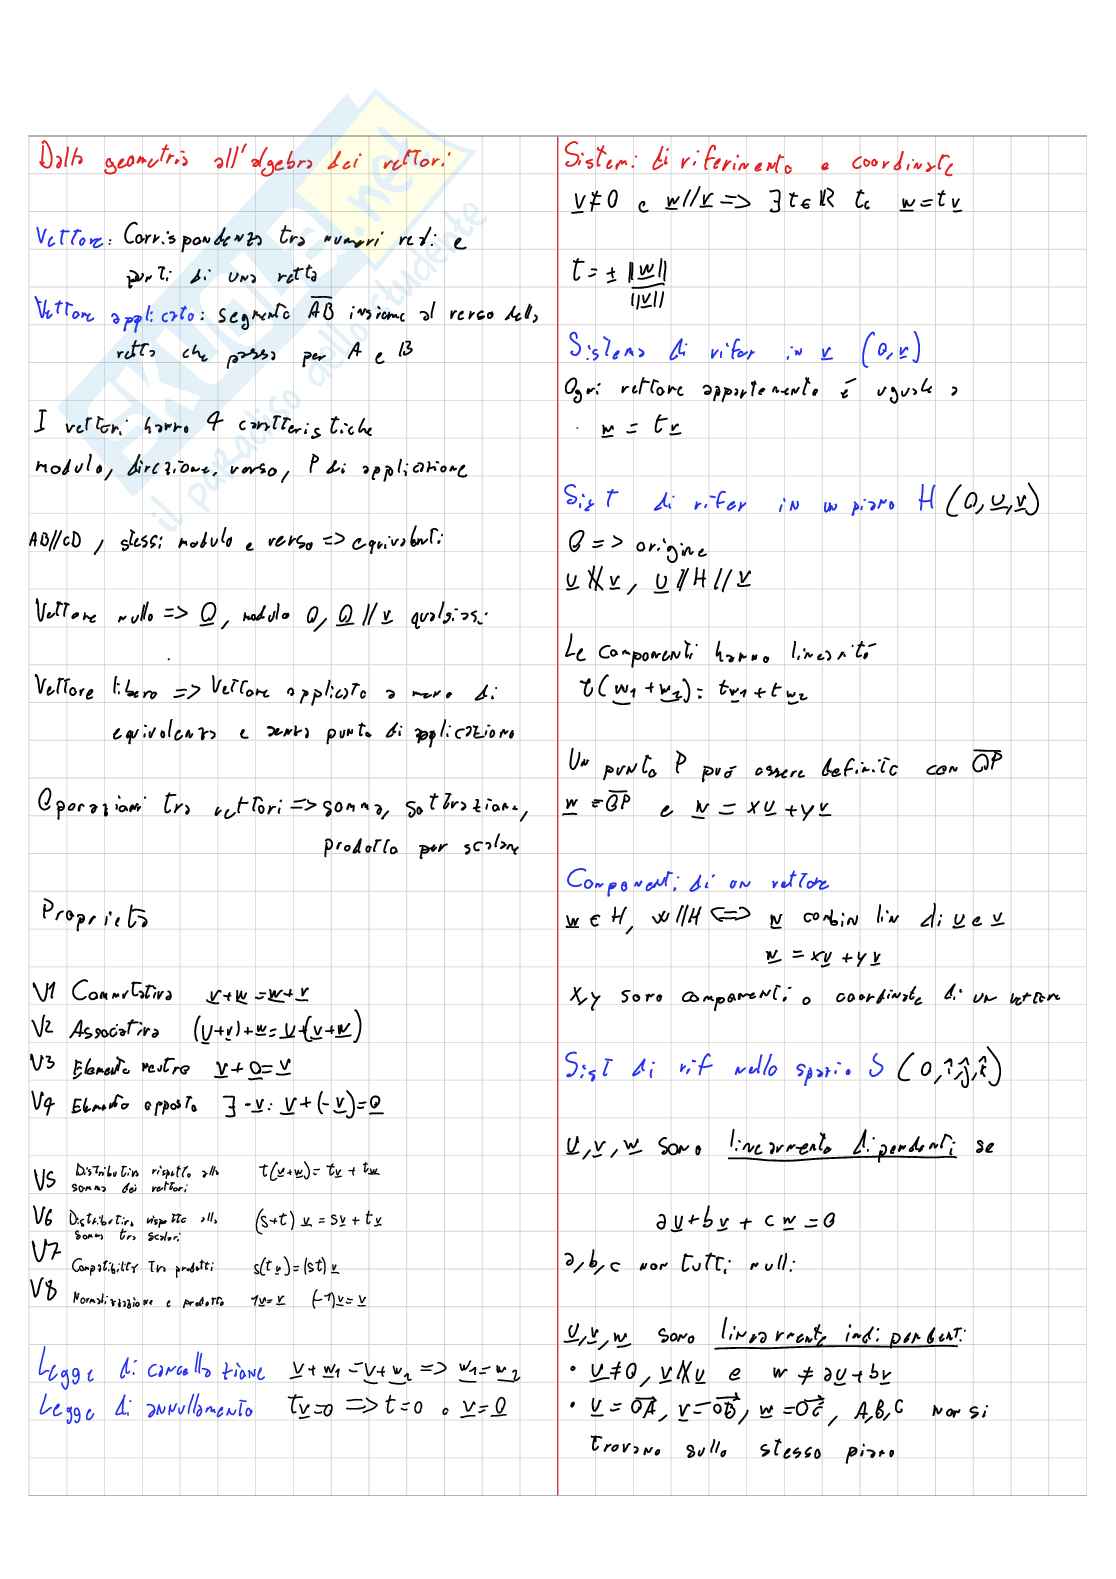 Dalla geometria all'algebra dei vettori
Vettore: Corrispondenza tra numeri reali e
punti di una retta
Vettore applicato: segmento A̅B̅ insieme al verso della
retta che passa per A e B
I vettori hanno 4 caratteristiche
modulo, direzione, verso, P di applicazione
AB//CD, stessi modulo e verso => equivalenti
Vettore nullo => O̲, modulo 0, O̲ // v̲ qualsiasi
Vettore libero => Vettore applicato a meno di
equivalenza e senza punto di applicazione
Operazioni tra vettori => somma, sottrazione,
prodotto per scalare
Proprietà
V1 Commutativa v̲+w̲=w̲+v̲
V2 Associativa (u̲+v̲)+w̲=u̲+(v̲+w̲)
V3 Elemento neutro v̲+0̲=v̲
V4 Elemento opposto ∃ -v̲: v̲+(-v̲)=0̲
V5 Distributiva rispetto alla somma dei vettori t(v̲+w̲)=tv̲+tw̲
V6 Distributiva rispetto alla somma tra scalari (s+t)v̲=sv̲+tv̲
V7 Compatibility tra prodotti s(tv̲)=(st)v̲
V8 Normalizzazione e prodotto 1v̲=v̲ (-1)v̲=v̲
Legge di cancellazione v̲+w̲₁=v̲+w̲₂ => w̲₁=w̲₂
Legge di annullamento tv̲=0 => t=0 o v̲=0̲
Sistemi di riferimento e coordinate
v̲≠0 e w̲//v̲ => ∃ t∈ℝ tc w̲=tv̲
t=± ||w̲||/||v̲||
Sistema di rifer in r̲ (O,v̲)
Ogni vettore appartemente è uguale a
w̲ = tv̲
Sist di rifer in un piano H (O,u̲,v̲)
O => origine
u̲ ∦ v̲, u̲ // H // v̲
Le componenti hanno linearità
t(w̲₁+w̲₂)=tw̲₁+tw̲₂
Un punto P può essere definito con O̅P̅
w̲ = O̅P̅ e w̲ = xu̲+yv̲
Componenti di un vettore
w̲ ∈ H, w//H <=> w̲ combin lin di u̲ e v̲
w̲ = xu̲+yv̲
x,y sono componenti o coordinate di un vettore
Sist di rif nello spazio S (O,î,ĵ,k̂)
u̲,v̲,w̲ sono linearmente dipendenti se
au̲+bv̲+cw̲=0
a,b,c non tutti nulli
u̲,v̲,w̲ sono linearmente indipendenti
• u̲≠0, v̲∦u̲ e w ≠ au̲+bv̲
• u̲=OA⃗, v̲=OB⃗, w̲=OC⃗, A,B,C non si
trovano sullo stesso piano
SKUOLA.net
il paradiso dello studente